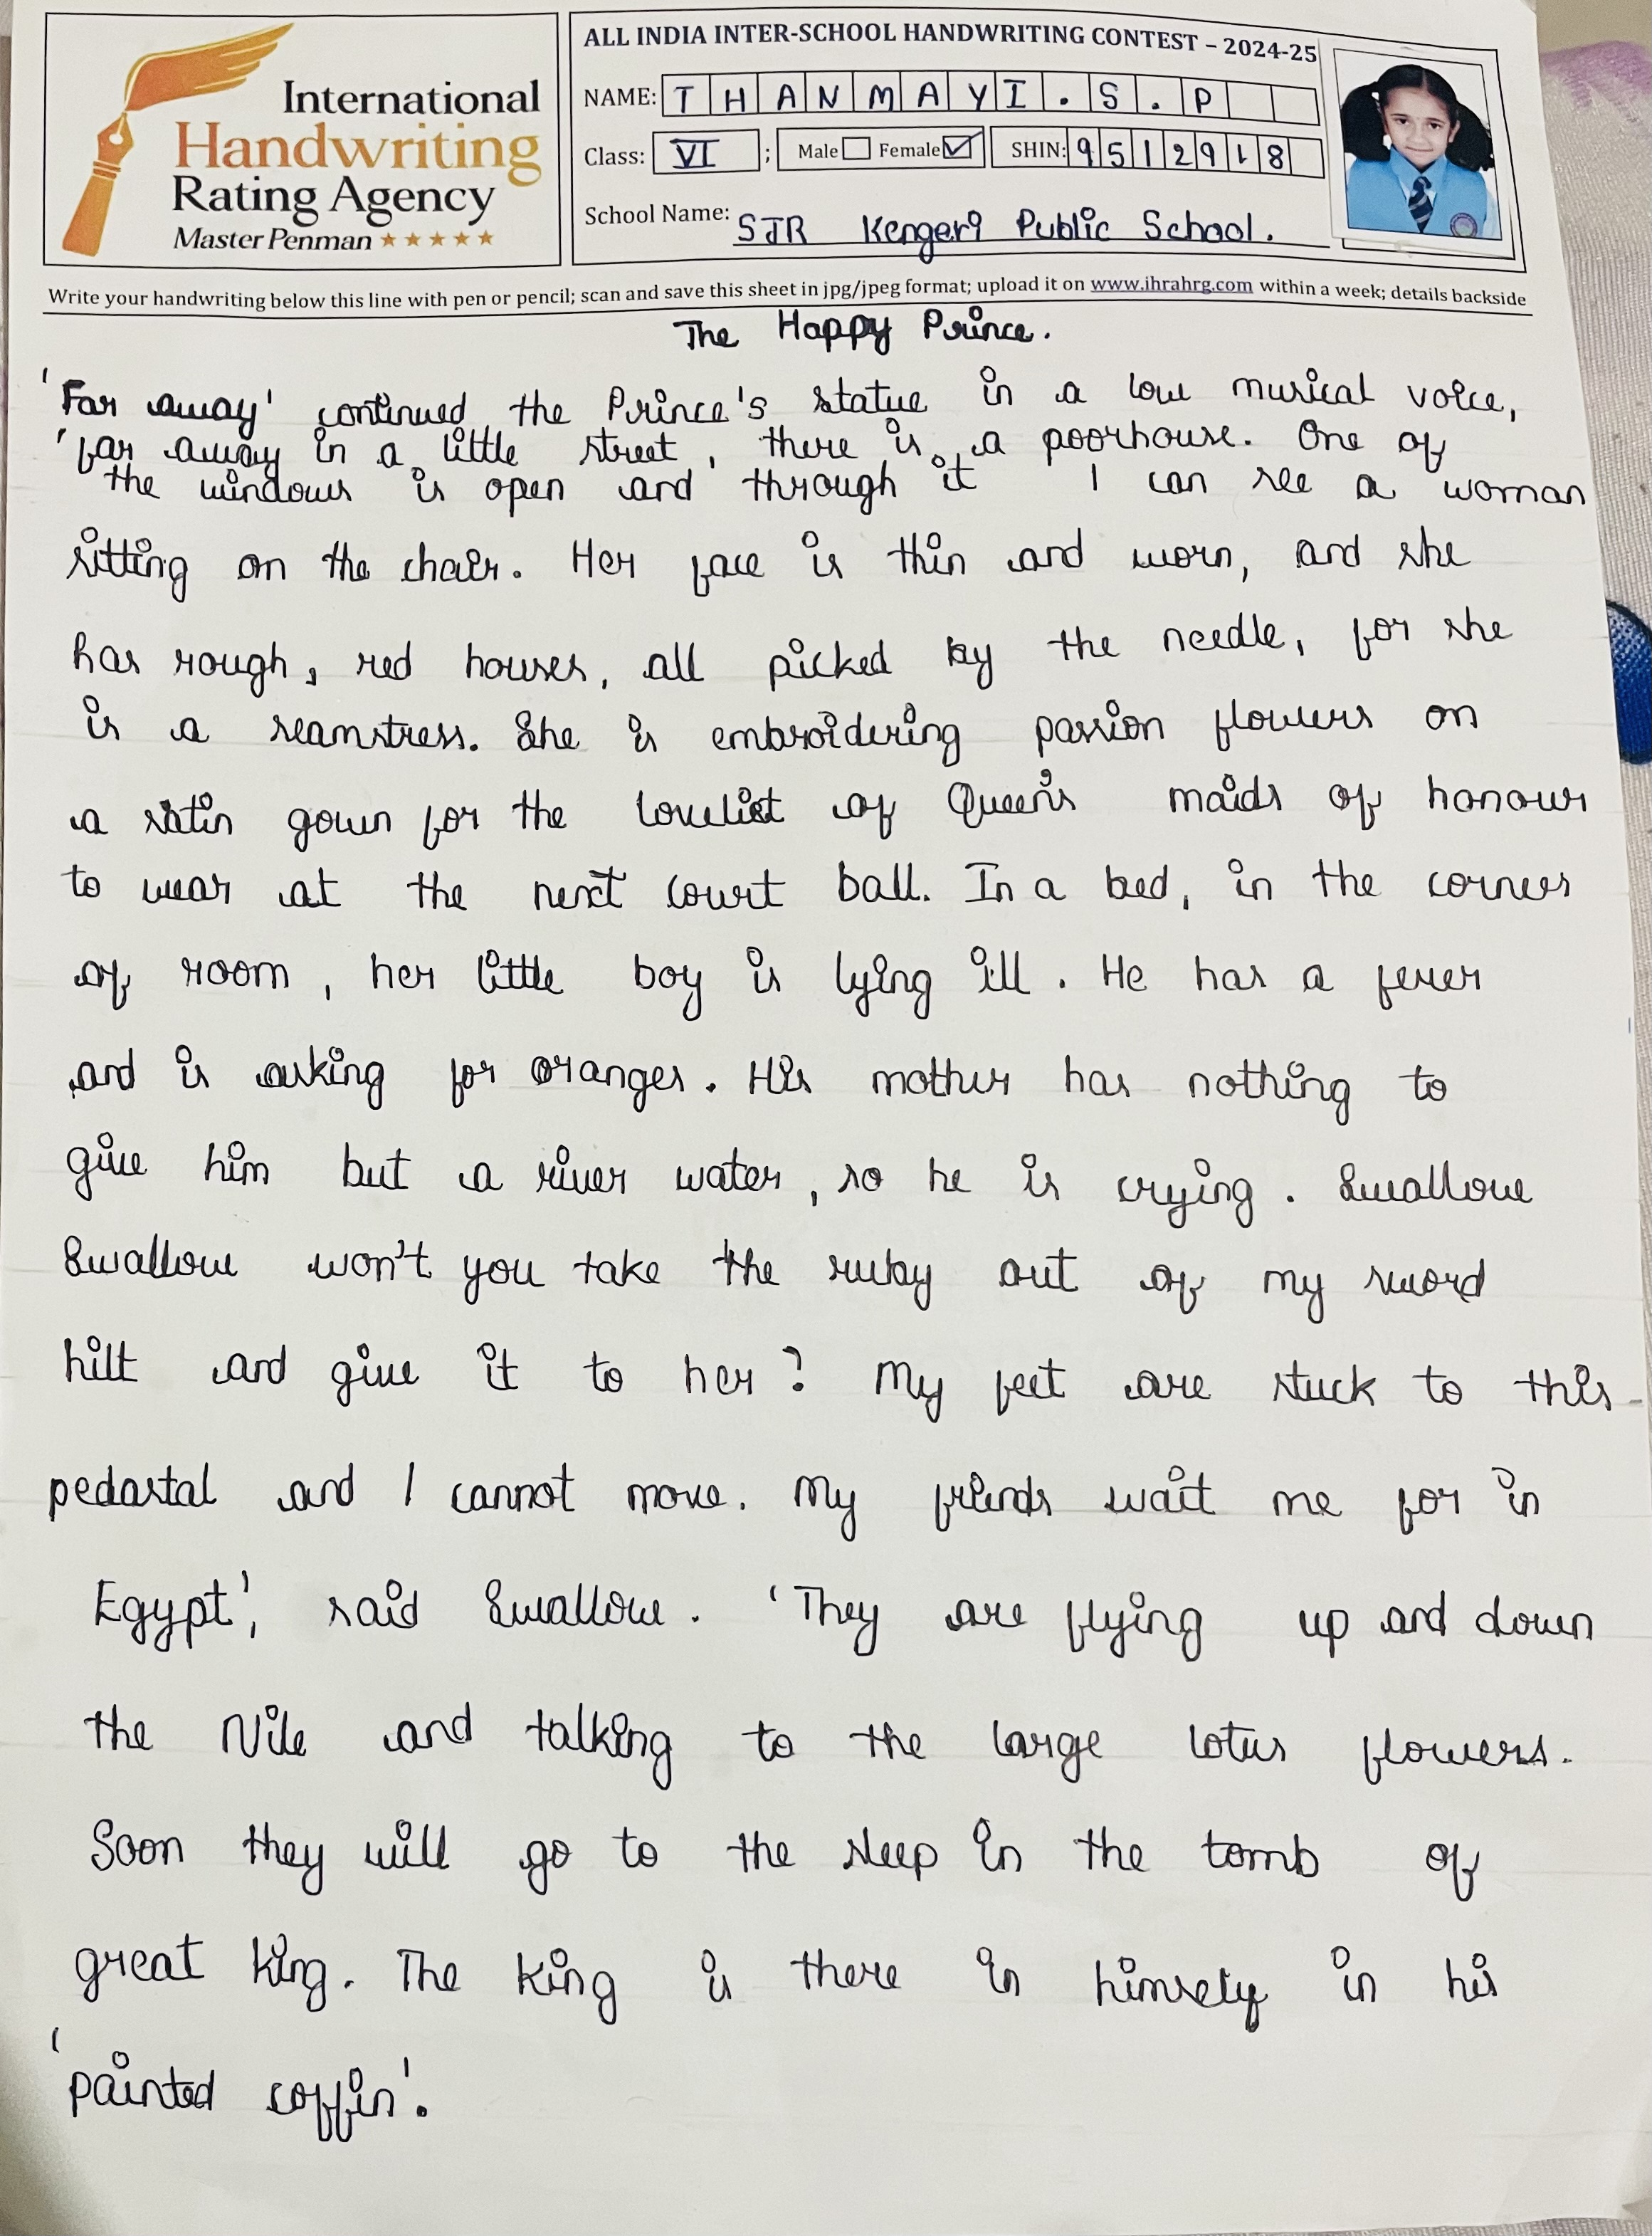 International
Handwriting
Rating Agency
Master Penman ★★★★★
ALL INDIA INTER-SCHOOL HANDWRITING CONTEST – 2024-25
NAME: THANMAYI.S.P
Class: VI ; Male Female SHIN: 9512918
School Name: SJR Kengeri Public School.
Write your handwriting below this line with pen or pencil; scan and save this sheet in jpg/jpeg format; upload it on www.ihrahrg.com within a week; details backside
The Happy Prince.
'Far away' continued the Prince's statue in a low musical voice,
'far away in a little street, there is a poorhouse. One of
the windows is open and through it I can see a woman
sitting on the chair. Her face is thin and worn, and she
has rough, red houses, all picked by the needle, for she
is a seamstress. She is embroidering passion flowers on
a satin gown for the loveliest of Queen's maids of honour
to wear at the next court ball. In a bed, in the corner
of room, her little boy is lying ill. He has a fever
and is asking for oranges. His mother has nothing to
give him but a river water, so he is crying. Swallow
Swallow won't you take the ruby out of my sword
hilt and give it to her? My feet are stuck to this
pedastal and I cannot move. My friends wait me for in
Egypt', said Swallow. 'They are flying up and down
the Nile and talking to the large lotus flowers.
Soon they will go to the sleep in the tomb of
great king. The King is there in himself in his
'painted coffin'.